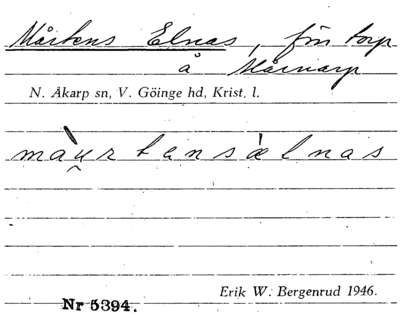 Mårtens Elnas, fin torp
å Mårarp
N. Åkarp sn, V. Göinge hd, Krist. l.
màu̯rtensæ̀lnas
Erik W. Bergenrud 1946.
Nr 5394.